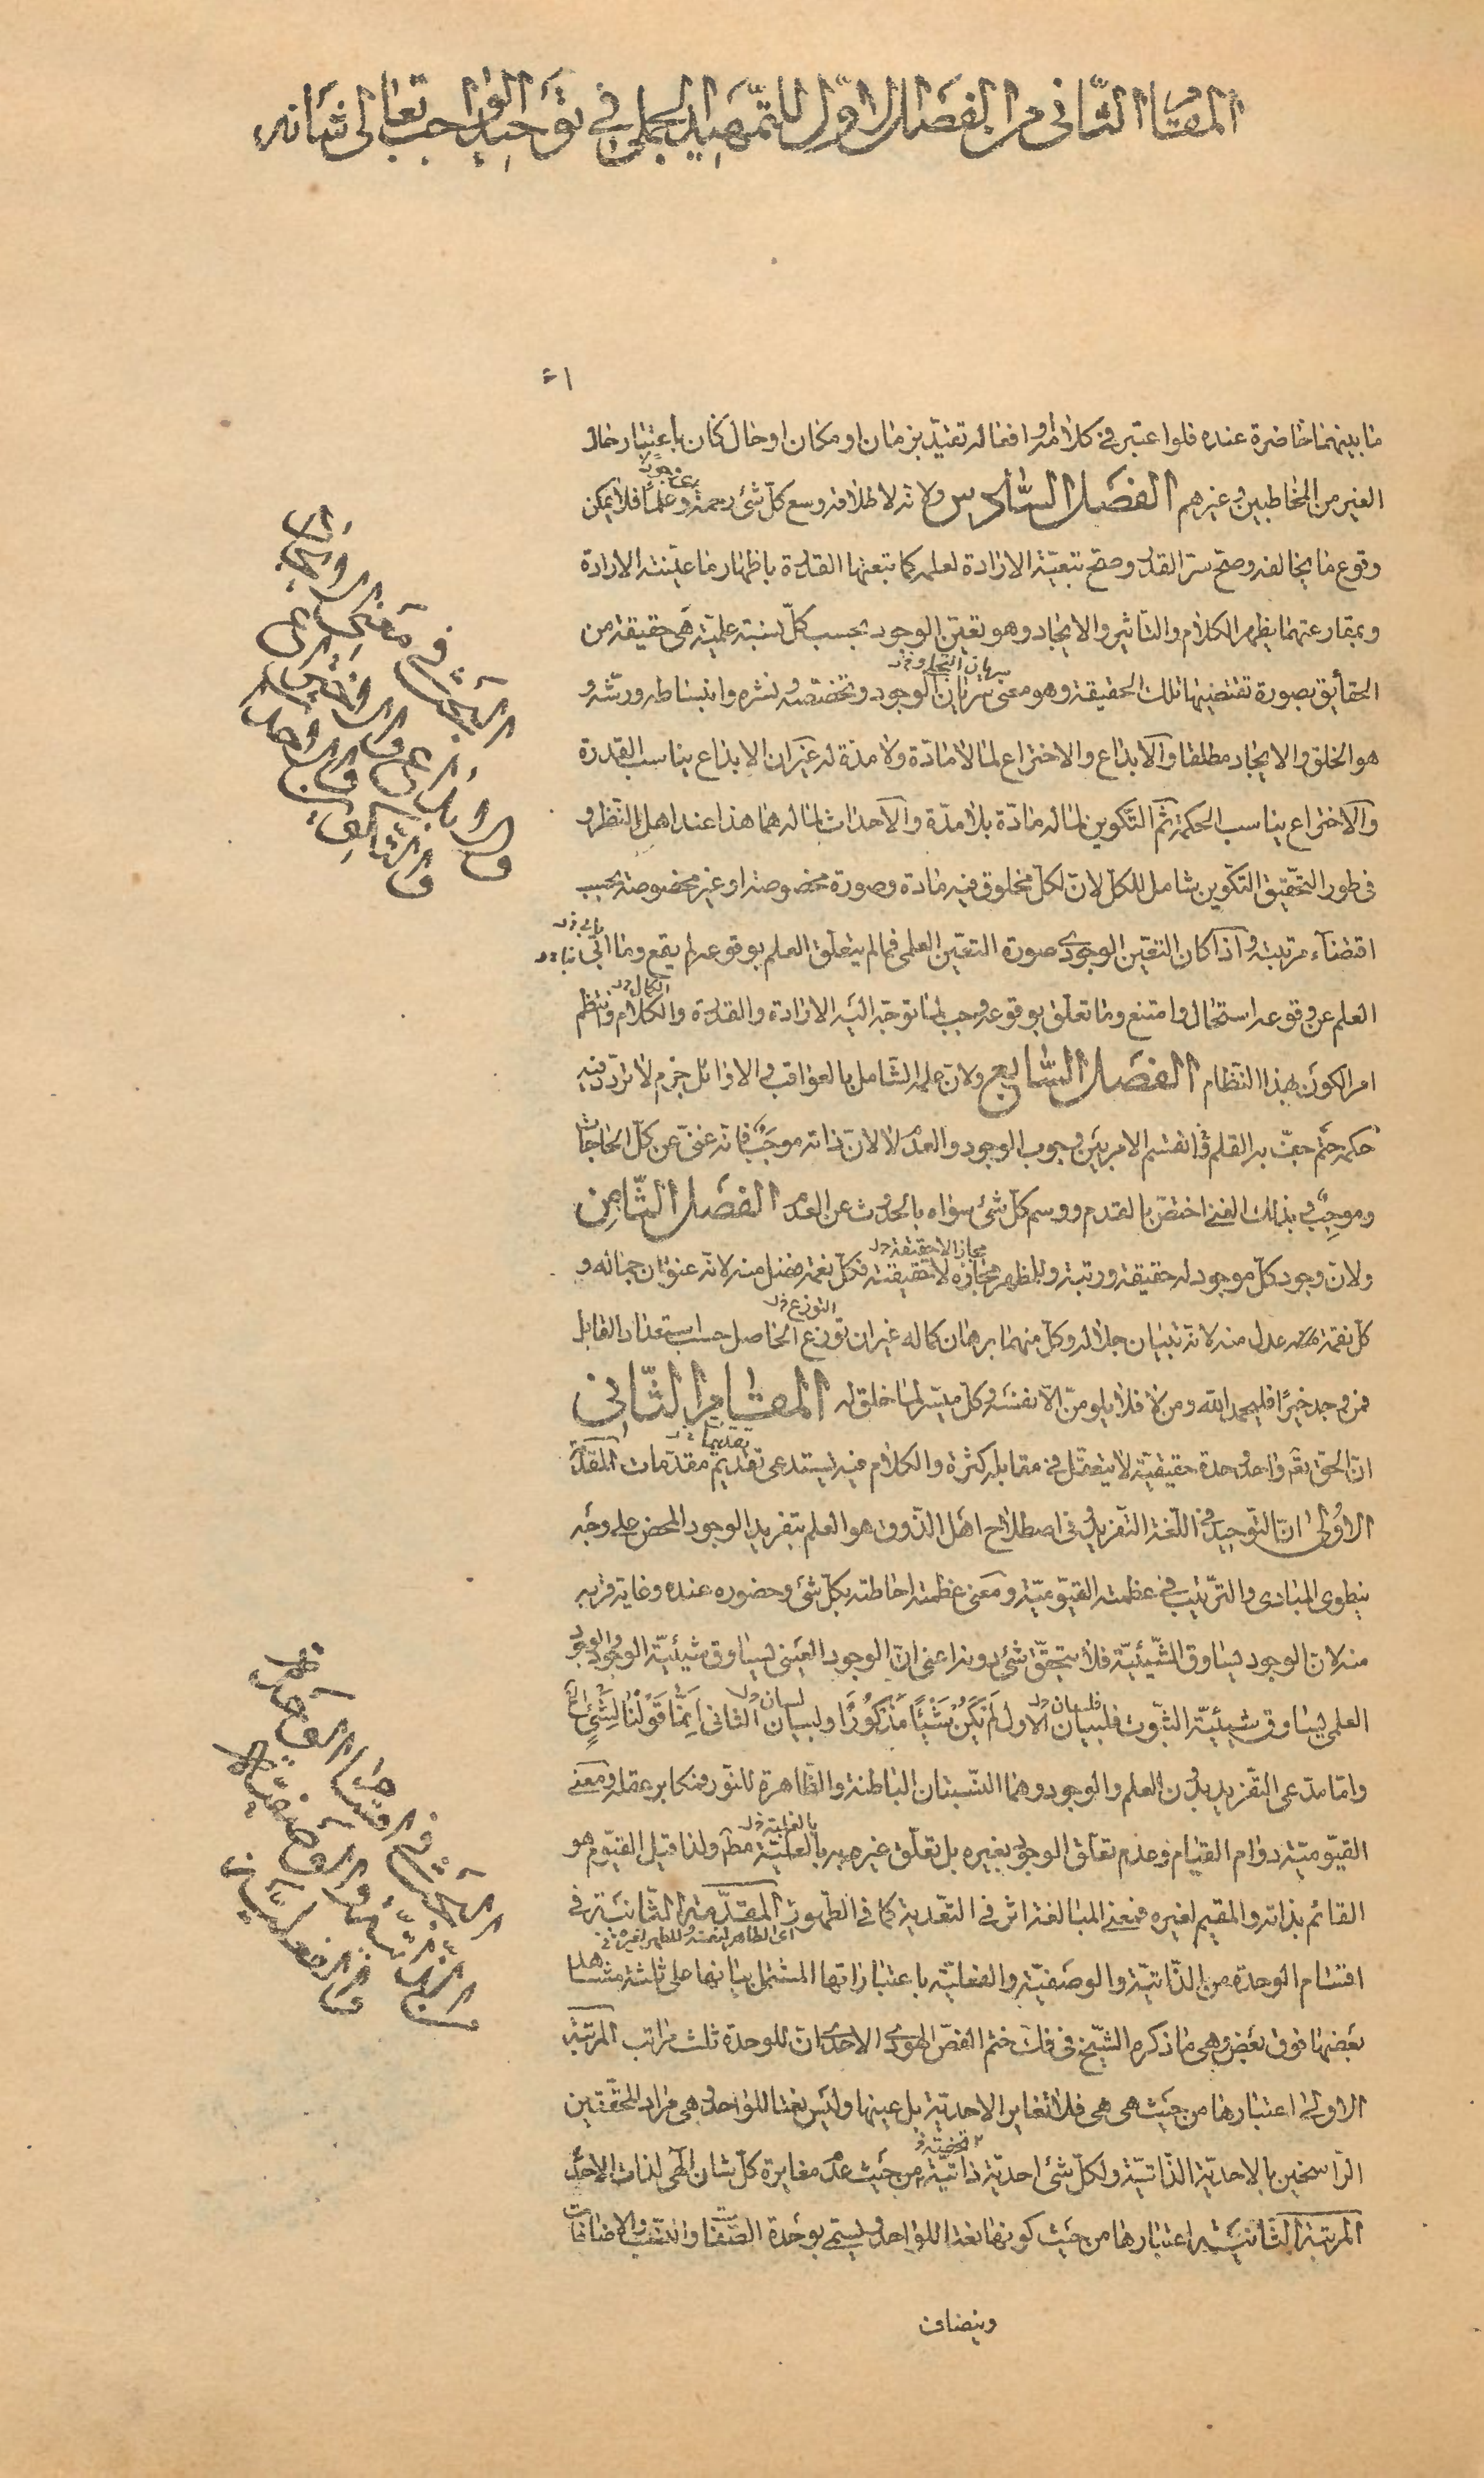 المقام الثاني من الفصل الاول للتمهيد الجملي في توحيد الواجب تعالى شانه
ما بينهما حاضرة عنده فلو اعتبر في كلامه او افعاله تقيّد بزمان او مكان او حال كان باعتبار حال
الغير من المخاطبين وغيرهم الفصل السّادس ولانه لاطلاقه وسع كلّ شئ رحمة وعلمًا فلا يمكن
وقوع ما يخالفه وصحّ سرّ القدر وصحّ تبعيّة الارادة لعلمه كما تبعتها القدرة باظهار ما عيّنته الارادة
وبمقارعتهما يظهر الكلام والتاثير والايجاد وهو تعيّن الوجود بحسب كلّ نسبة علميّة هى حقيقة من
الحقايق بصورة تقتضيها تلك الحقيقة وهو معنى سريان الوجود وتخصّصه ونشره وانبساطه ورشّه و
هو الخلق والايجاد مطلقا والابداع والاختراع لما لا مادّة ولا مدّة له غير ان الابداع يناسب القدرة
والاختراع يناسب الحكمة ثم التّكوين لما له مادّة بلا مدّة والاحداث لما له هما هذا عند اهل النّظر و
فى طور التّحقيق التكوين شامل للكل لان لكل مخلوق فيه مادة وصورة مخصوصة او غير مخصوصة بحسب
اقتضاء مرتبته واذا كان التعيّن الوجودى صورة التعيّن العلمى فما لم يتعلّق العلم بوقوعه لم يقع وما ابى
العلم عن وقوعه استحال وامتنع وما تعلّق بوقوعه وجب لما توجّه اليه الارادة والقدرة والكلام فانتظم
امر الكون بهذا النّظام الفصل السّابع ولان علمه الشّامل بالعواقب والاوائل جزم لا تردّد فيه
حكمه حتم جفّ به القلم فانقسم الامر بين وجوب الوجود والعدم لا لان ذاته موجَب فانه غنىّ عن كلّ الحاجات
وموجِب وبذلك الغنى اختصّ بالقدم ووسم كلّ شئ سواه بالحدوث عن العدم الفصل الثّامن
ولان وجود كلّ موجود له حقيقة ورتبة وللمظهر مجازه لا حقيقته فكلّ نعمة فضل منه لانه عنوان جماله و
كلّ نقمة عدل منه لانه تبيان جلاله وكلّ منهما برهان كماله غير ان توزع الحاصل حسب استعداد القابل
فمن وجد خيرًا فليحمد الله ومن لا فلا يلومنّ الّا نفسه وكل ميسّر لما خلق له المقام الثّاني
انّ الحق تعالى واحد وحدة حقيقيّة لا يتعقّل في مقابله كثرة والكلام فيه يستدعى تقديم مقدّمات المقدمة
الاولى انّ التّوحيد في اللّغة التّفريد وفى اصطلاح اهل الذّوق هو العلم بتفريد الوجود المحض على وجه
ينطوى المبادى والتّرتيب في عظمته القيّوميّة ومعنى عظمته احاطته بكلّ شئ وحضوره عنده وغاية قربه
منه لان الوجود يساوق الشّيئيّة فلا يتحقّق شئ دونه اعنى انّ الوجود العينى يساوق شيئيّة الوجود والوجود
العلمى يساوق شيئيّة الثبوت فلبيان الاول لَمْ يَكُنْ شَيْئًا مَذْكُورًا ولبيان الثانى اِنَّمَا قَوْلُنَا لِشَيْءٍ
وامّا مدّعى التّفريد بدون العلم والوجود وهما النّسبتان الباطنة والظّاهرة للنّور فمكابر عقله ومعنى
القيّوميّة دوام القيام وعدم تعلّق الوجود بغيره بل تعلّق غيره به بالعلّيّة ولذا قيل القيّوم هو
القائم بذاته والمقيم لغيره فمعنى المبالغة اثر في التّعدية كما في الطّهور المقدّمة الثّانية في
اقسام الوحدة من الذّاتيّة والوصفيّة والفعليّة باعتباراتها المشتمل بيانها على ثلثة مشاهد
بعضها فوق بعض وهى ما ذكره الشيخ في فكّ ختم الفصّ الهودى الاحدى ان للوحدة ثلث مراتب المرتبة
الاولى اعتبارها من حيث هى هى فلا تغاير الاحديّة بل عينها وليس نعتا للواحد وهى مراد المحقّقين
الرّاسخين بالاحديّة الذّاتيّة ولكلّ شئ احديّة ذاتيّة من حيث عدم مغايرة كلّ شان الهى لذات الاحد
المرتبة الثانية اعتبارها من حيث كونها نعتا للواحد ويسمّى بوحدة الصّفات والنّسب والاضافات
وينضاف
البحث في معنى الايجاد
والابداع والاختراع
والتكوين والاحداث
البحث في اقسام الوحدة
من الذاتية والوصفية
والفعلية